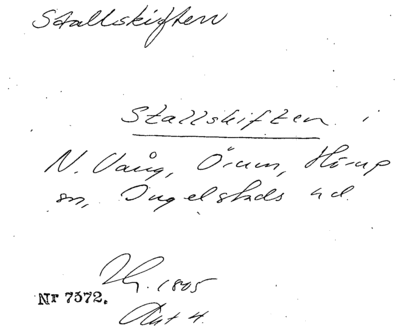 Stallskiften
Stallskiften i
N. Vång, Örum, Hörup
sn, Ingelstads hd.
1805
Nr 7372.
Akt 4.